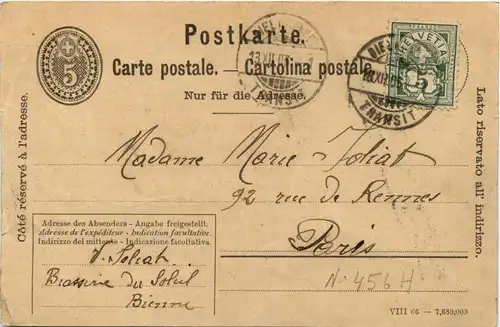 Postkarte.
Carte postale. — Cartolina postale.
Nur für die Adresse.
5
HELVETIA
5
TRANSIT
TRANSIT
Côté réservé à l'adresse.
Lato riservato all' indirizzo.
Madame Marie Joliat
92 rue de Rennes
Paris
Adresse des Absenders - Angabe freigestellt.
Adresse de l'expéditeur - Indication facultative.
Indirizzo del mittente - Indicazione facoltativa.
V. Joliat
Brasserie du Soleil
Bienne
N. 456 H
VIII 06 — 7,680,000